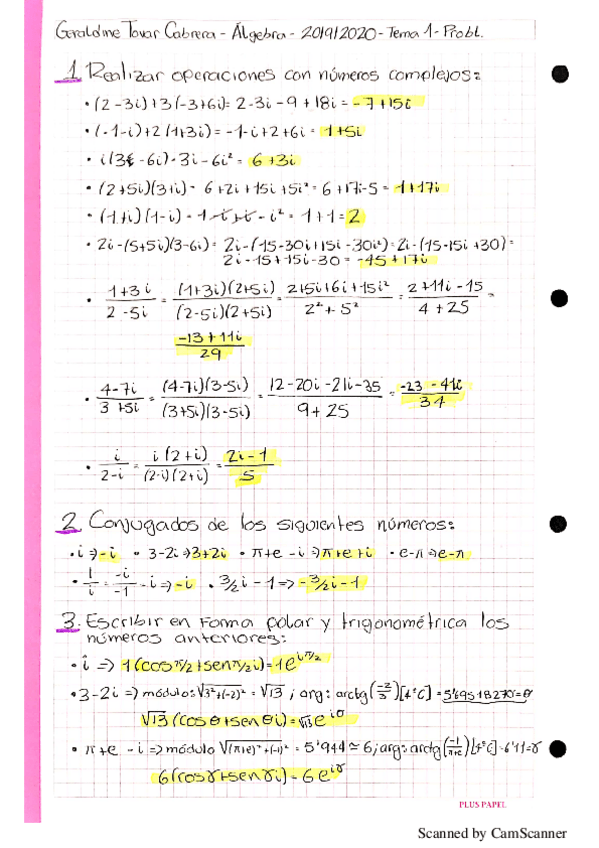 Geraldine Tovar Cabrera - Álgebra - 20/9/2020 - Tema 1 - Probl.
1. Realizar operaciones con números complejos:
• (2-3i)+3(-3+6i) = 2-3i-9+18i = -7+15i
• (-1-i)+2(1+3i) = -1-i+2+6i = 1+5i
• i(3-6i) = 3i-6i² = 6+3i
• (2+5i)(3+i) = 6+2i+15i+5i² = 6+17i-5 = 1+17i
• (1+i)(1-i) = 1-i+i-i² = 1+1 = 2
• 2i-(5+5i)(3-6i) = 2i-(15-30i+15i-30i²) = 2i-(15-15i+30) =
2i-15+15i-30 = -45+17i
• 1+3i/2-5i = (1+3i)(2+5i)/(2-5i)(2+5i) = 2+5i+6i+15i²/2²+5² = 2+11i-15/4+25 =
-13+11i/29
• 4-7i/3+5i = (4-7i)(3-5i)/(3+5i)(3-5i) = 12-20i-21i-35/9+25 = -23-41i/34
• i/2-i = i(2+i)/(2-i)(2+i) = 2i-1/5
2. Conjugados de los siguientes números:
• i => -i • 3-2i => 3+2i • π+e-i => π+e+i • e-π => e-π
• 1/i = -i/-1 = -i => -i • 3/2i-1 => -3/2i-1
3. Escribir en forma polar y trigonométrica los
números anteriores:
• i => 1(cosπ/2+senπ/2i) = 1e^iπ/2
• 3-2i => módulo: √3²+(-2)² = √13 ; arg: arctg(-2/3)[4ºC] = 5'695182703=θ
√13(cosθ+senθi) = √13e^iθ
• π+e-i => módulo √(π+e)²+(-1)² = 5'944 ≃ 6; arg: arctg(-1/π+e)[4ºC] = 6'11=γ
6(cosγ+senγi) = 6e^iγ
PLUS PAPEL
Scanned by CamScanner